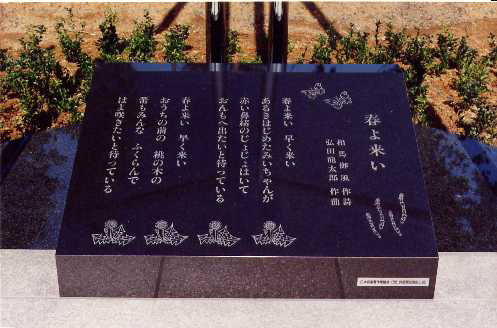 春よ来い
相馬御風 作詩
弘田龍太郎 作曲
春よ来い 早く来い
あるきはじめたみいちゃんが
赤い鼻緒のじょじょはいて
おんもへ出たいと待っている
春よ来い 早く来い
おうちの前の 桃の木の
蕾もみんな ふくらんで
はよ咲きたいと待っている